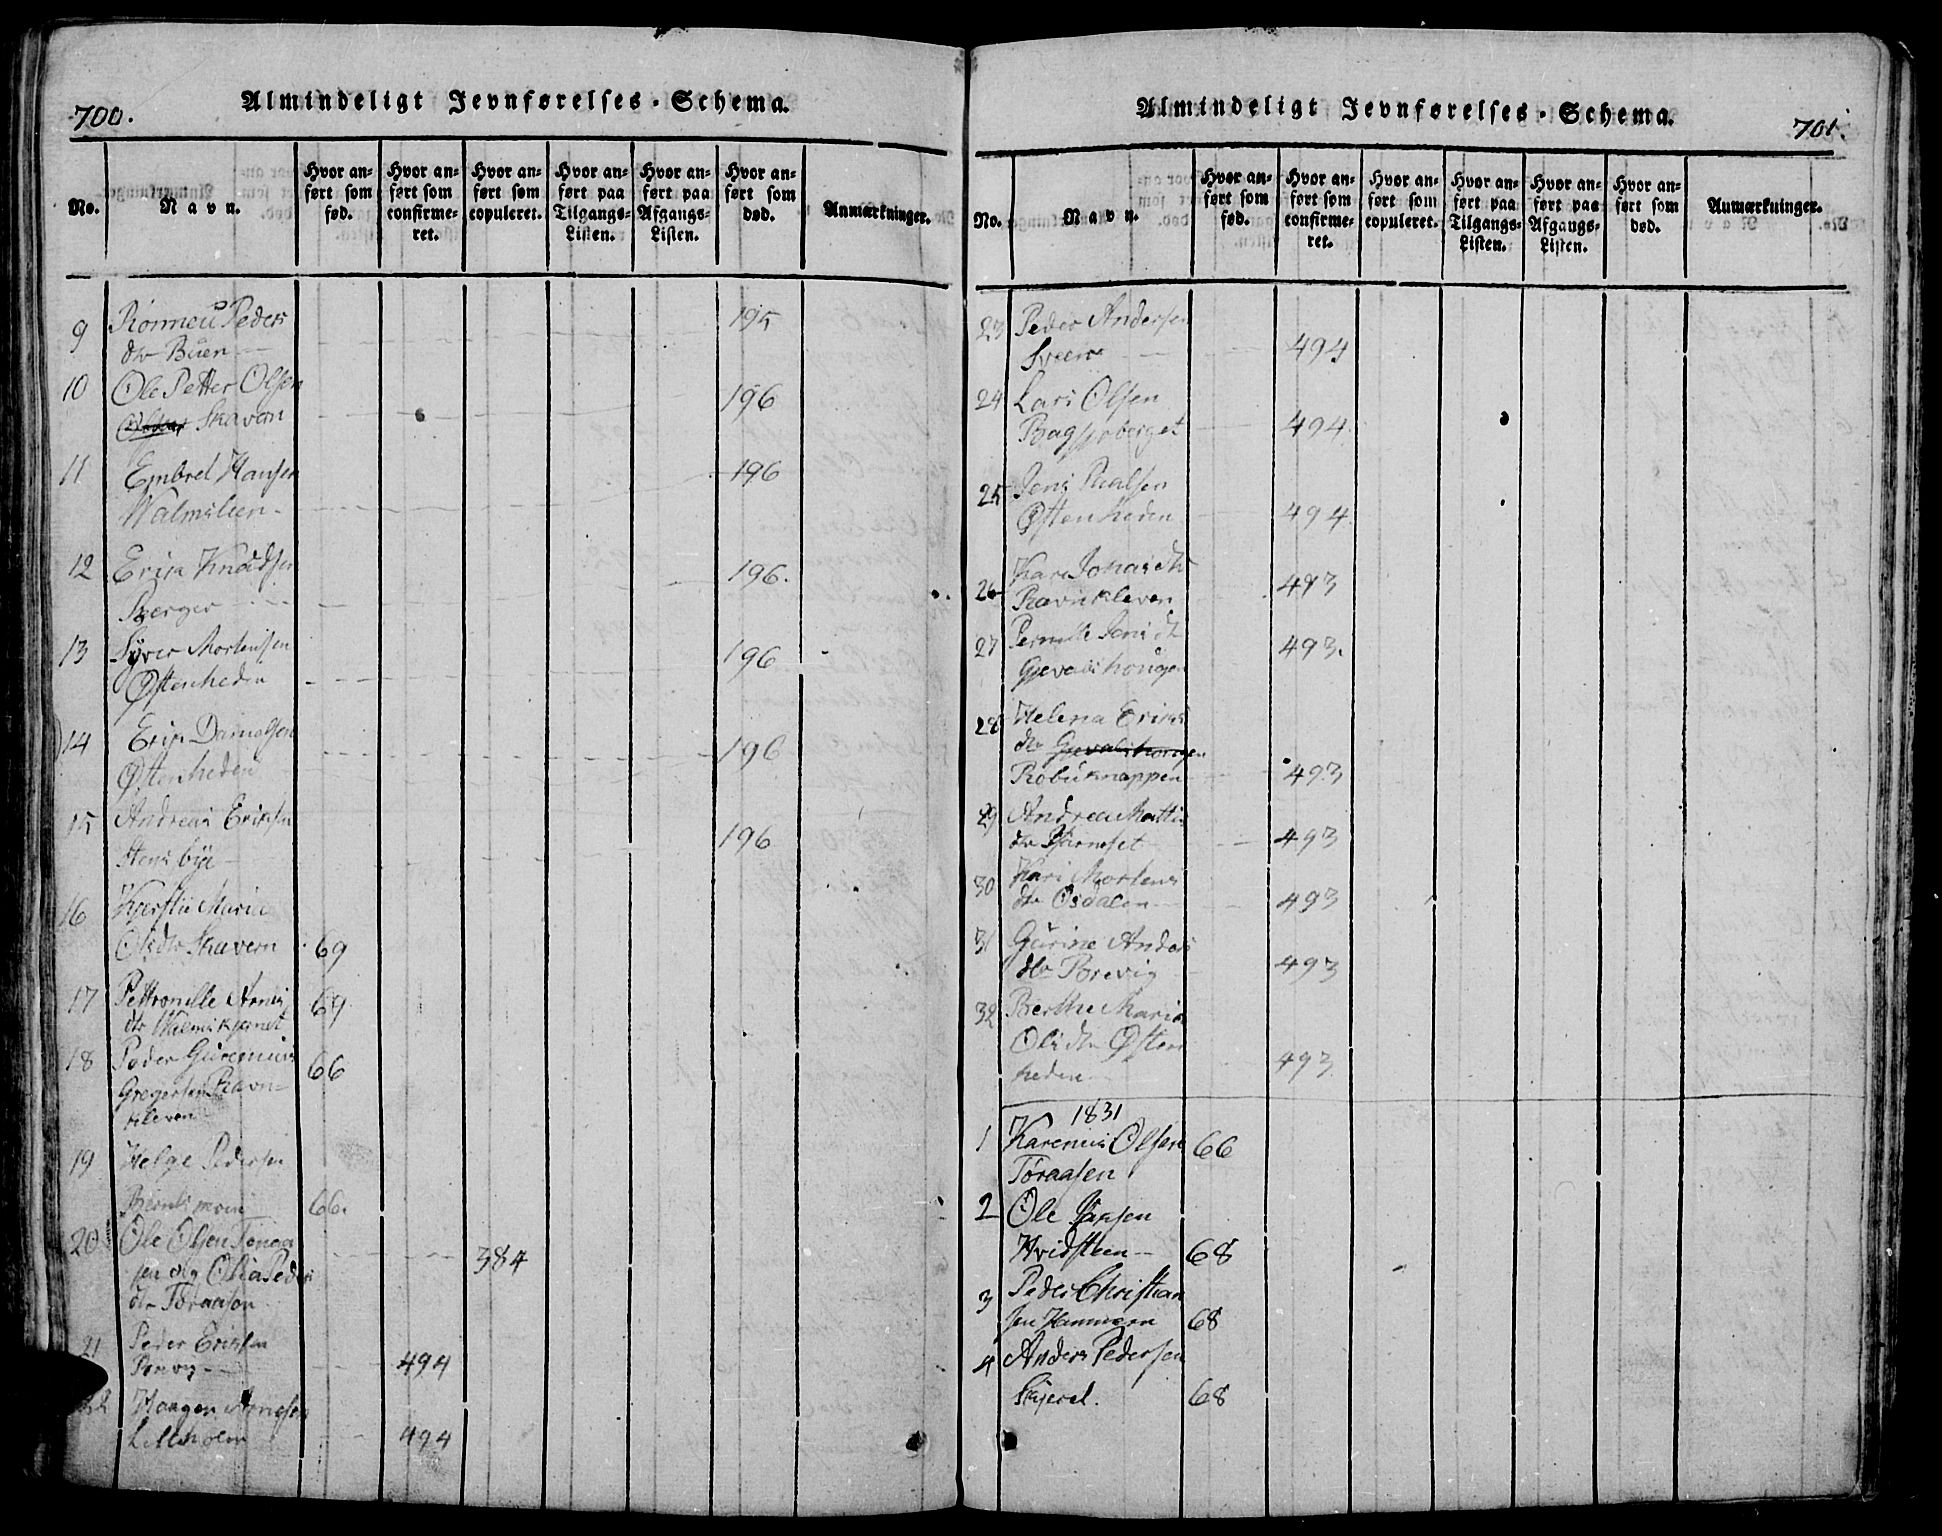 700.
Almindeligt Jevnførelses-Schema.
No.
Navn.
Hvor anført som fød.
Hvor anført som confirmeret.
Hvor anført som copuleret.
Hvor anført paa Tilgangs-Listen.
Hvor anført paa Afgangs-Listen.
Hvor anført som død.
Anmærkninger.
9 Rönneü Peders 195
dtr Büen
10 Ole Petter Olsen 196
Skavern
11 Embret Hansen 196
Walmslien
12 Erik Knudsen 196.
Berger
13 Syver Mortensen 196
Østenheden
14 Erik Danielsen 196
Østenheden
15 Andreas Eriksen 196
Stensbye
16 Kjerstie Maria
Olsdtr Skavern 69
17 Pettronille Arnes 69
dtr
18 Peder Gurenius 66
Gregersen Ravn-
kleven
19 Helge Pedersen
66.
20 Ole Olsen Toraa
sen og Olia Peders 384
dtr Toraasen
21 Peder Eriksen
494
22 Haagen Arnesen
Lilleholm 494
701.
Almindeligt Jevnførelses-Schema.
No.
Navn.
Hvor anført som fød.
Hvor anført som confirmeret.
Hvor anført som copuleret.
Hvor anført paa Tilgangs-Listen.
Hvor anført paa Afgangs-Listen.
Hvor anført som død.
Anmærkninger.
23 Peder Andersen
Sveen 494
24 Lars Olsen
494.
25 Jens Paalsen
Østenheden 494.
26 Kari Jonasdtr 493
Ravnkleven
27 Pernille Jensdtr 493.
Gjevalshougen
28 Helena Eriks
dtr Gjevalshougen
Robüknappen 493
29 Andrea Mattis
dtr 493
30 Kari Mortens
dtr Osdalen 493
31 Gurine Anders
dtr Brevig 493
32 Berthe Maria
Olsdtr Østen
heden 493
1831
1 Karenius Olsen 66
Toraasen
2 Ole
Hvidsteen 68
3 Peder Christian
sen Hammeren 68
4 Anders Pedersen
Skjerel. 68